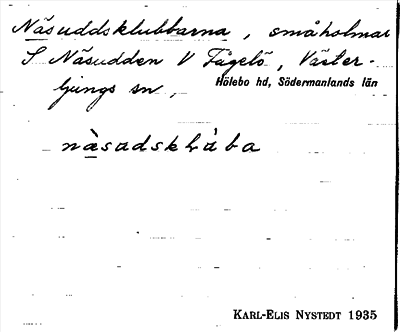 Näsuddsklubbarna, småholmar
S Näsudden V Fågelö, Väster-
ljungs sn,
Hölebo hd, Södermanlands län
näsadsklåba
KARL-ELIS NYSTEDT 1935